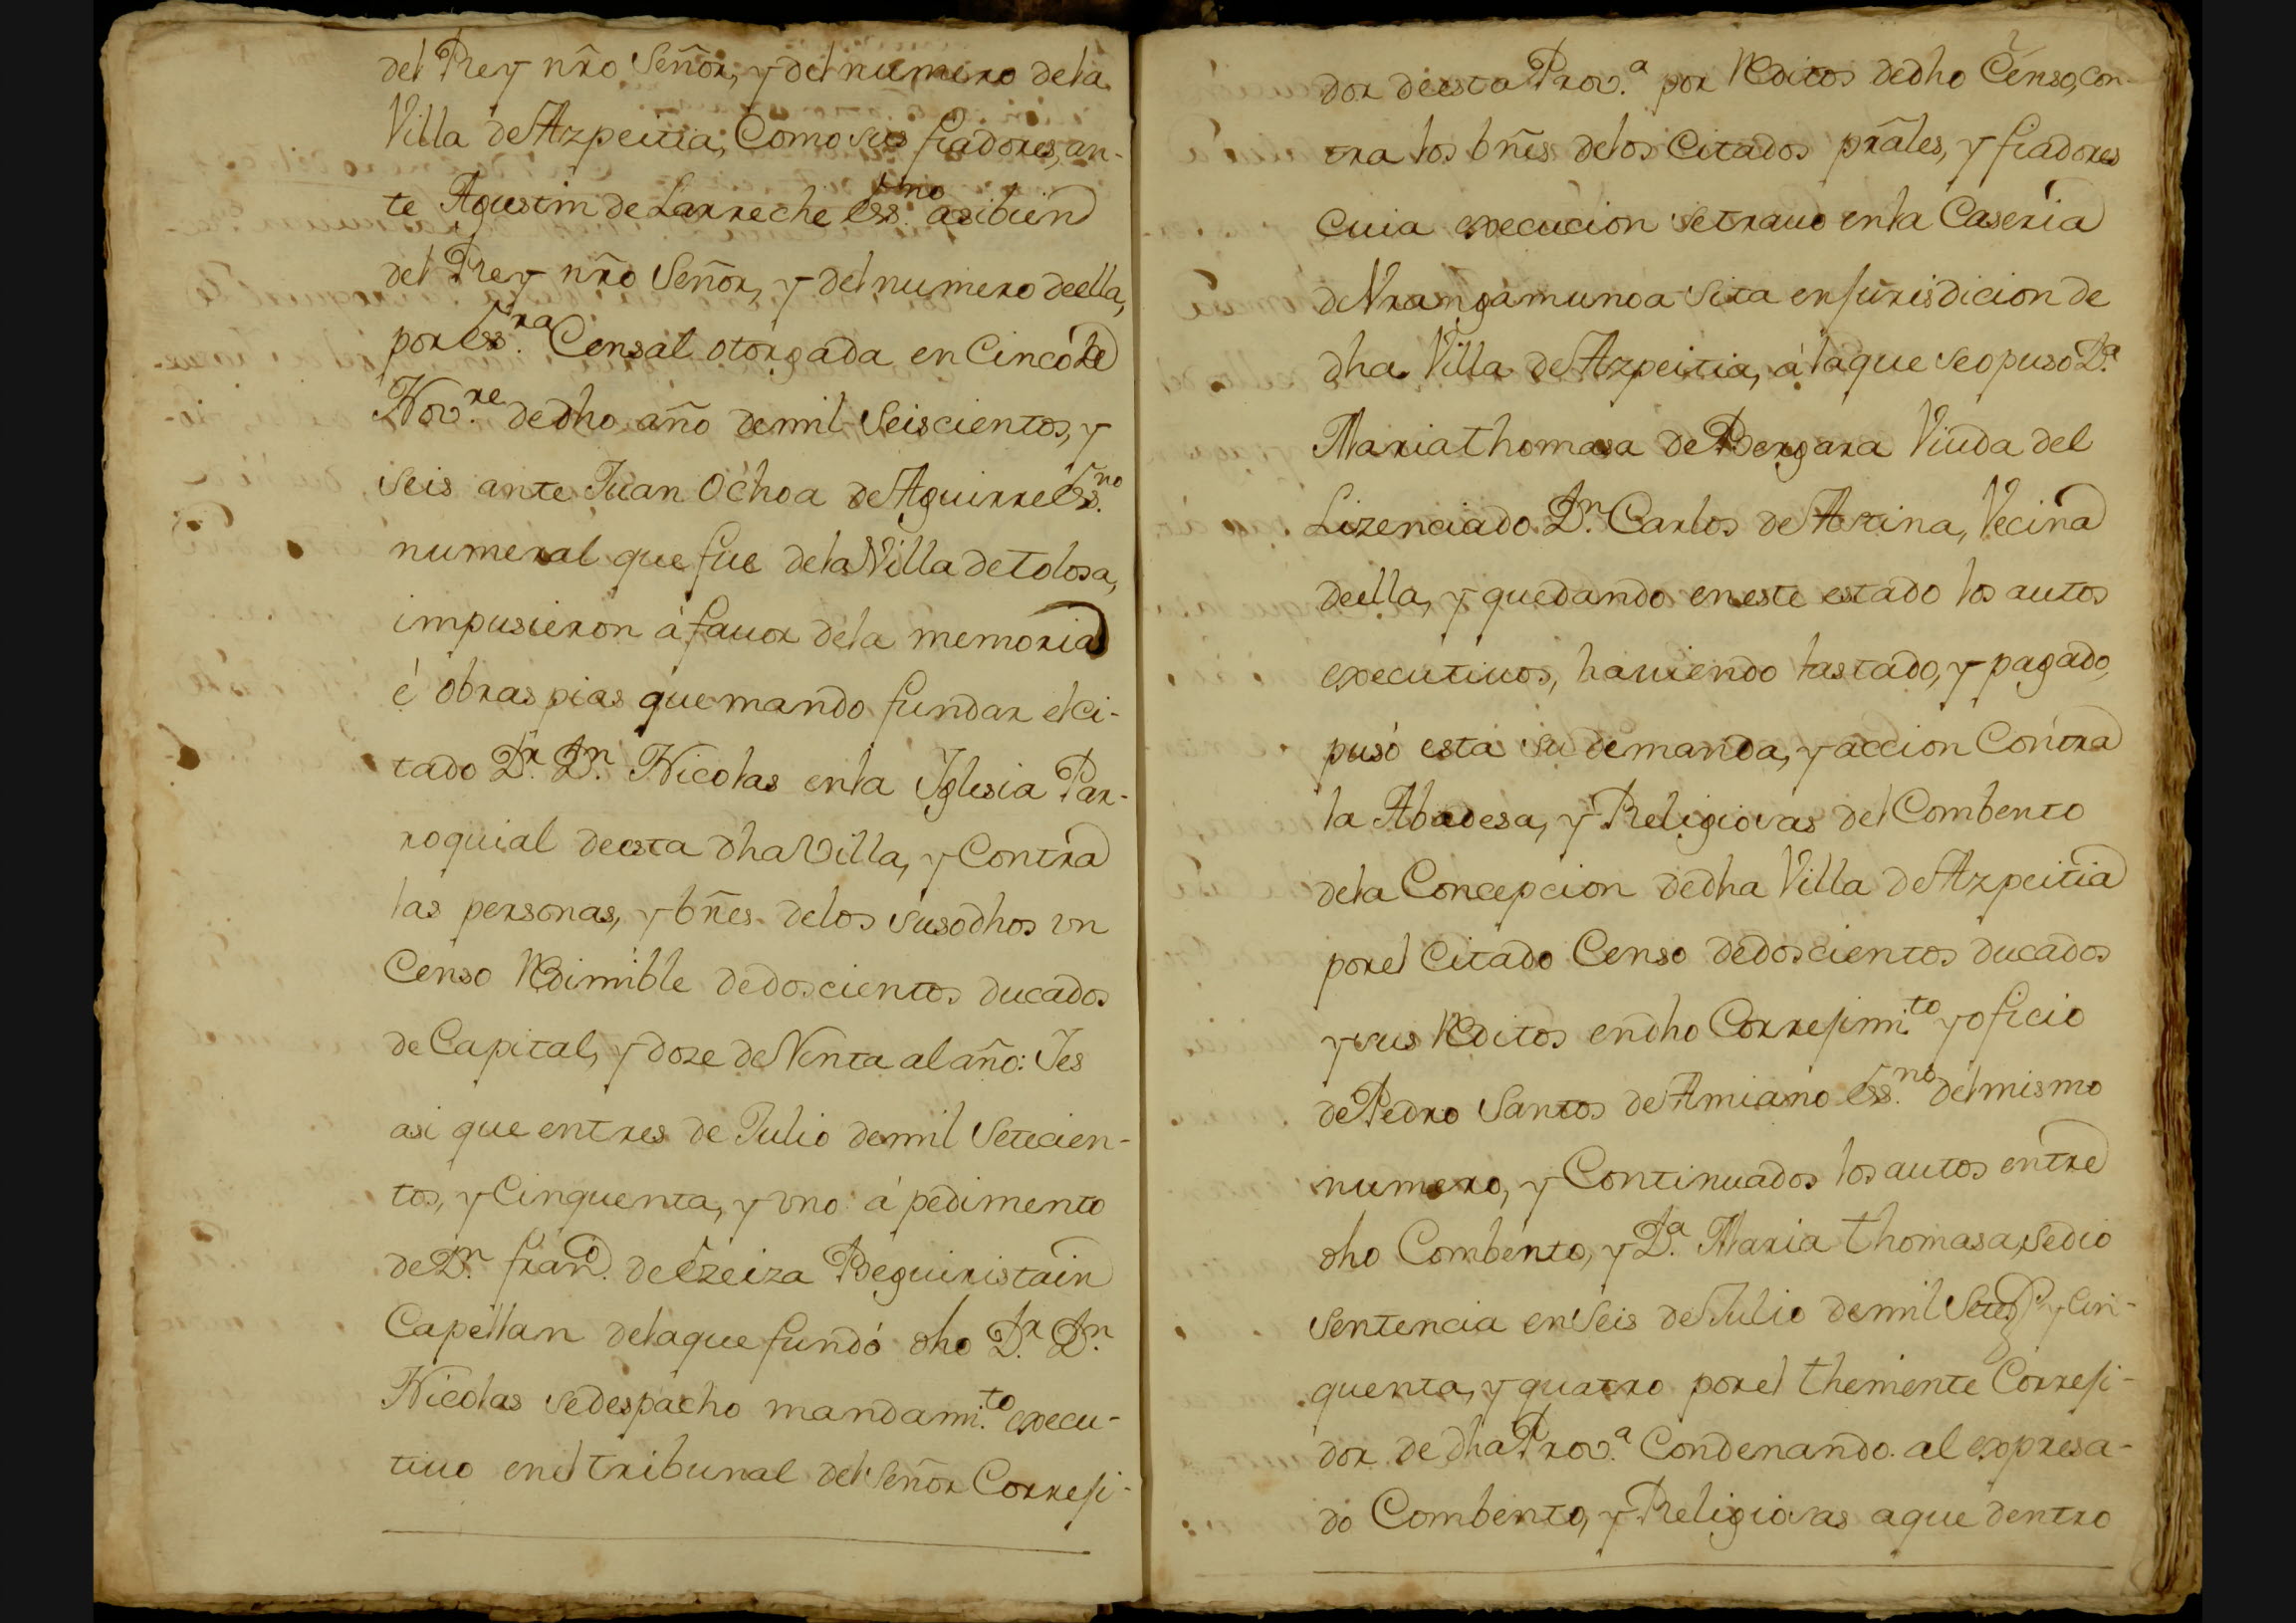 del Rey nr̃o Señor, y del numero de la
Villa de Azpeitia, Como sus fiadores, an-
te Agustin de Larreche ess.no asibien
del Rey nr̃o Señor, y del numero de ella,
por ess.ra Censal otorgada en Cinco de
Nov.re de dho año de mil Seiscientos, y
seis ante Juan Ochoa de Aguirre ess.no
numeral que fue de la Villa de tolosa,
impusieron á fauor de la memoria
é obras pias que mando fundar el ci-
tado D.r D.n Nicolas en la Iglesia Par-
roquial de esta dha Villa, y Contra
las personas, y bñes de los susodhos vn
Censo Redimible de doscientos ducados
de Capital, y doze de Renta al año: Ies
asi que en tres de Julio de mil Setecien-
tos, y Cinquenta, y vno á pedimento
de D.n fran.co de Ezeiza Beguiristain
Capellan de la que fundó dho D.r D.n
Nicolas se despacho mandami.to execu-
tiuo en el tribunal del Señor Correji-
dor de esta Prov.a por Reditos de dho Censo, con-
tra los bñes de los Citados prãles, y fiadores
Cuia execucion se trauo en la Caseria
de Vrangamunoa sita en jurisdicion de
dha Villa de Azpeitia, á la que se opuso D.a
Maria thomasa de Bergara Viuda del
Lizenciado D.n Carlos de Atina, Vecina
de ella, y quedando en este estado los autos
executiuos, hauiendo lastado, y pagado,
pusó esta su demanda, y accion Contra
la Abadesa, y Religiosas del Combento
de la Concepcion de dha Villa de Azpeitia
por el Citado Censo de doscientos ducados
y sus Reditos en dho Correjimi.to y oficio
de Pedro Santos de Amiano ess.no del mismo
numero, y Continuados los autos entre
dho Combento, y D.a Maria thomasa, se dio
Sentencia en Seis de Julio de mil Setez.s y Cin-
quenta, y quatro por el theniente Correji-
dor de dha Prov.a Condenando al expresa-
do Combento, y Religiosas a que dentro